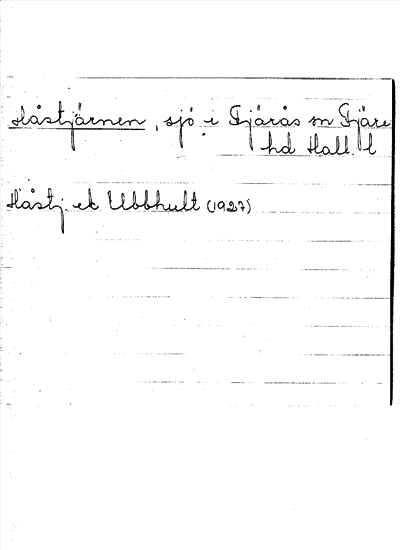 Håstjärnen, sjö i Fjärås sn Fjäre
hd Hall. l
Håstj. ek Ubbhult (1927)